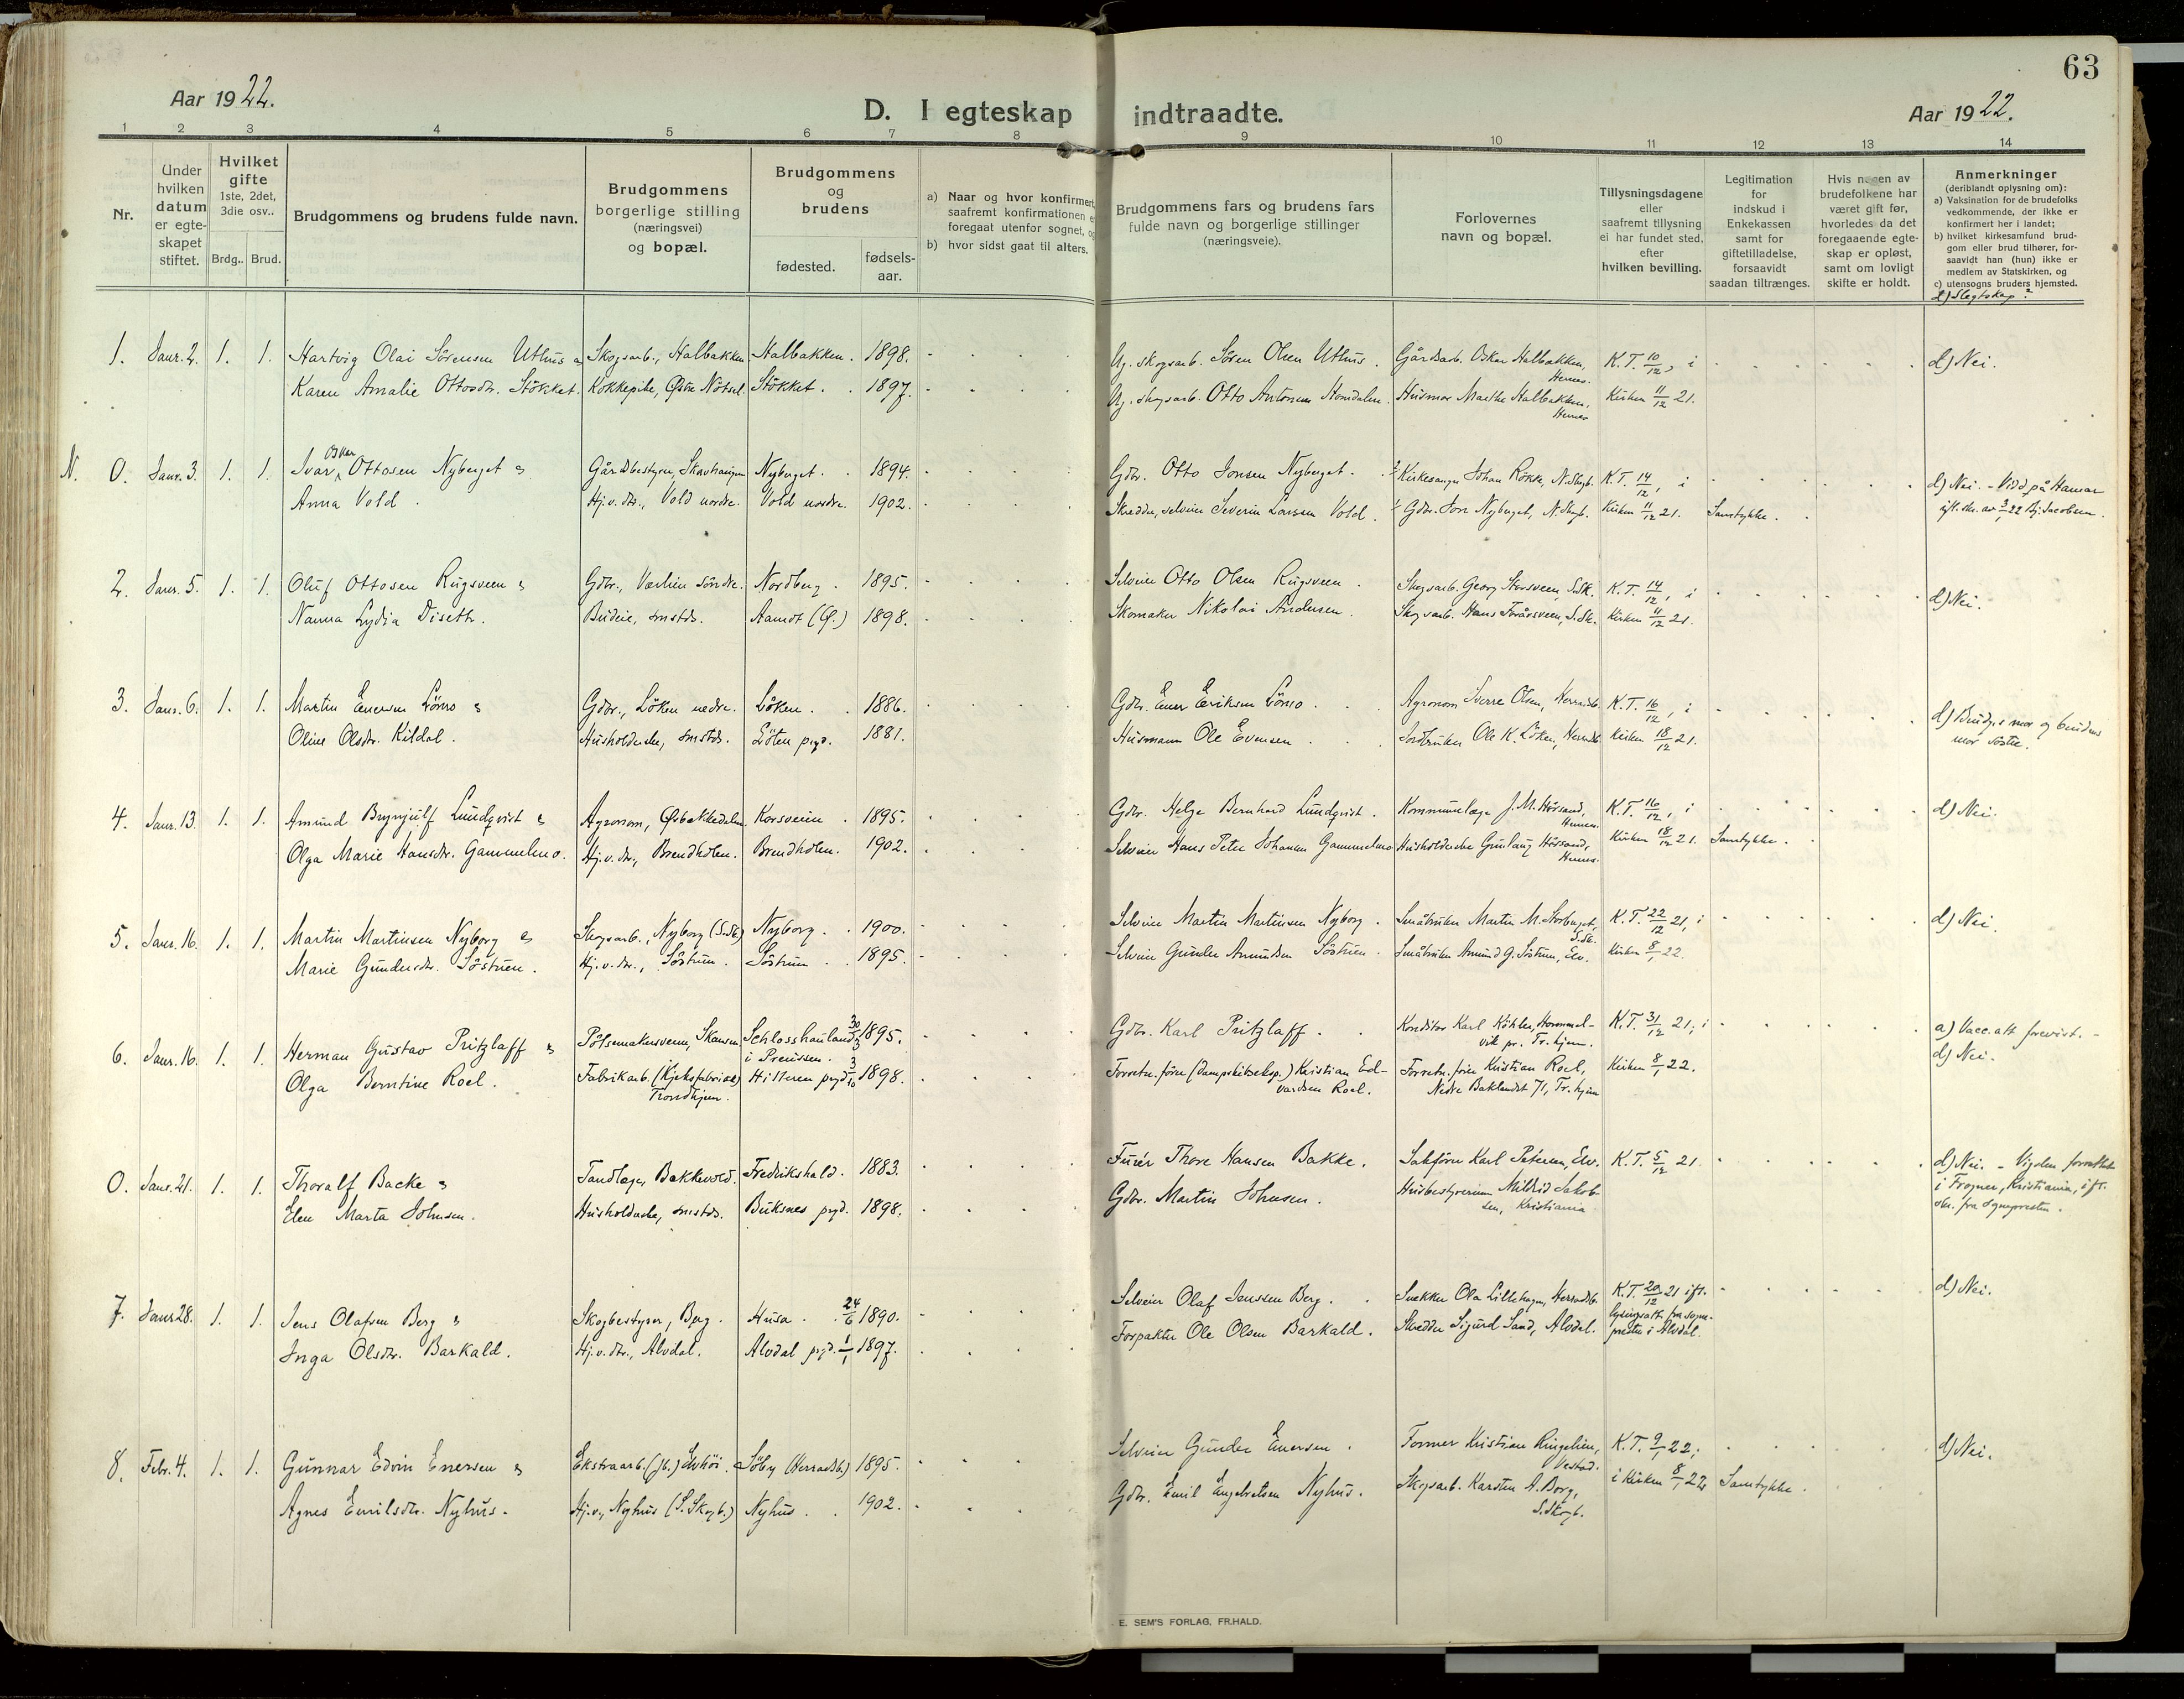 63
Aar 1922.
D. I egteskap indtraadte.
Aar 1922.
1 2 3 4 5 6 7 8 9 10 11 12 13 14
Nr.
Under hvilken datum er egteskapet stiftet.
Hvilket gifte
1ste, 2det, 3die osv..
Brdg.. Brud.
Brudgommens og brudens fulde navn.
Brudgommens borgerlige stilling (næringsvei) og bopæl.
Brudgommens og brudens
fødested.
fødselsaar.
a) Naar og hvor konfirmert, saafremt konfirmationen foregaat utenfor sognet,
b) hvor sidst gaat til alters.
Brudgommens fars og brudens fars fulde navn og borgerlige stillinger (næringsveie).
Forlovernes navn og bopæl.
Tillysningsdagene eller saafremt tillysning ei har fundet sted, efter hvilken bevilling.
Legitimation for indskud i Enkekassen samt for giftetilladelse, forsaavidt saadan tiltrænges.
Hvis nogen av brudefolkene har været gift før, hvorledes da det foregaaende egteskap er opløst, samt om lovligt skifte er holdt.
Anmerkninger
(deriblandt oplysning om):
a) Vaksination for de brudefolks vedkommende, der ikke er konfirmert her i landet;
b) hvilket kirkesamfund brudgom eller brud tilhører, forsaavidt han (hun) ikke er medlem av Statskirken, og
c) utensogns bruders hjemsted.
d) Slegtskap?
1. Janr. 2. 1. 1. Hartvig Olai Sörensen Uthus & Skogsarb., Halbakken Halbakken. 1898. Ug. skogsarb. Sören Olsen Uthus. Gårdsarb. Oskar Halbakken, Hernes. K.T. 10/12, i d) Nei.
Karen Amalie Ottosdr. Stökket. Kokkepike, Østre Nötsel. Stökket. 1897. Ug. skogsarb. Otto Antonsen Homdalen. Husmor Marthe Halbakken, Hernes Kirken 11/12 21.
N. 0. Janr. 3. 1. 1. Ivar Oskar Ottosen Nyberget & Gårdbestyrer, Skavhaugen Nyberget. 1894. Gdbr. Otto Jonsen Nyberget. Kirkesanger Johan Rökke, N. Skgb. K.T. 14/12, i d) Nei. - Vidd på Hamar
Anna Vold. Hj.v. dr., Vold nordre. Vold nordre. 1902. Skredder, selveier Severin Larsen Vold. Gdbr. Jon Nyberget, N. Skgb. Kirken 11/12 21. Samtykke. ifl. skr. av 3/1 22 Hj. Jacobsen.
2. Janr. 5. 1. 1. Oluf Ottosen Rugsveen & Gdbr.,Værlien söndre. Nordberg. 1895. Selveier Otto Olsen Rugsveen. Skogsarb. Georg Storsveen, S.Sk. K.T. 14/12, i d) Nei.
Nanna Lydia Diseth. Budeie, smstds. Aamot (Ø.) 1898. Skomaker Nikolai Andersen. Skogsarb. Hans Foråsveen, S.Sk. Kirken 11/12 21.
3. Janr. 6. 1. 1. Martin Enersen Lömo & Gdbr., Löken nedre. Löken. 1886. Gdbr. Ener Eriksen Lömo. Agronom Sverre Olsen, Herradsb. K.T. 16/12, i d) Brudg.s mor og brudens mor söstre.
Oline Olsdr. Kildal. Husholderske, smstds. Löten prgd. 1881. Husmann Ole Evensen. Jordbruker Ole K. Löken, Herradsb. Kirken 18/12 21.
4. Janr. 13. 1. 1. Amund Brynjulf Lundqvist & Agronom, Øsbekkedalen. Korsveien. 1895. Gdbr. Helge Bernhard Lundqvist. Kommunelæge J. M. Hörsand, Hernes. K.T. 16/12, i d) Nei.
Olga Marie Hansdr. Gammelmo. Hj.v. dr., Brendholen. Brendholen. 1902. Selveier Hans Peter Johansen Gammelmo Husholderske Gunlaug Hörsand, Hernes. Kirken 18/12 21. Samtykke.
5. Janr. 16. 1. 1. Martin Martinsen Nyborg & Skogsarb., Nyborg (S.Sk.) Nyborg. 1900. Selveier Martin Martinsen Nyborg. Småbruker Martin M. Storberget, S.Sk. K.T. 22/12 21, i d) Nei.
Marie Gundersdr. Söstuen. Hj.v. dr., Söstuen. Söstuen. 1895. Selveier Gunder Amundsen Söstuen. Småbruker Amund G. Söstuen, Elv. Kirken 8/1 22.
6. Janr. 16. 1. 1. Herman Gustav Pritzlaff & Pölsemakersvenn, Skansen Schlosshauland i Preussen. 30/3 1895. Gdbr. Karl Pritzlaff. Konditor Karl Köhler, Hommelvik pr. Tr.hjem. K.T. 31/12 21, i a) Vacc.att forevist. - d) Nei.
Olga Berntine Roel. Fabrikarb. (kjeksfabrikk) Trondhjem. Hitteren prgd. 3/10 1898. Forretn.förer (dampskibseksp.) Kristian Edvardsen Roel. Forretn.förer Kristian Roel, Nedre Baklandet 71, Tr.hjem Kirken 8/1 22.
0. Janr. 21. 1. 1. Thoralf Backe & Tandlæge, Bakkevold. Fredrikshald. 1883. Furér Thore Hansen Bakke. Sakförer Karl Petersen, Elv. K.T. 5/12 21. d) Nei. - Vigslen forrettet i Frogner, Kristiania, ifl. skr. fra Sognepresten.
Elen Marta Johnsen. Husholderske, smstds. Buksnes prgd. 1898. Gdbr. Martin Johnsen. Husbestyrerinne Mildrid Jakobsen, Kristiania
7. Janr 28. 1. 1. Jens Olafsen Berg & Skogbestyrer, Berg. Husa. 24/6 1890. Selveier Olaf Jenssen Berg. Snekker Ola Lillehagen, Herradsb. K.T. 20/12 21 ifl. d) Nei.
Inga Olsdr. Barkald. Hj.v. dr., Alvdal. Alvdal prgd. 1/1 1897. Forpakter Ole Olsen Barkald. Skredder Sigurd Sand, Alvdal. lysingsatt. fra sognepresten i Alvdal.
8. Febr. 4. 1. 1. Gunnar Edvin Enersen & Ekstraarb. (jb.) Elvhöi. Söby (Herradsb.) 1895. Selveier Gunder Enersen. Former Kristian Ringelien, Vestad. K.T. 9/1 22; d) Nei.
Agnes Emilsdr. Nyhus. Hj.v., Nyhus (S. Skogb.) Nyhus. 1902. Gdbr. Emil Engebretsen Nyhus. Skogsarb. Karsten A. Borg, S.Skogb. i Kirken 8/1 22 Samtykke.
E. SEM'S FORLAG, FR.HALD.